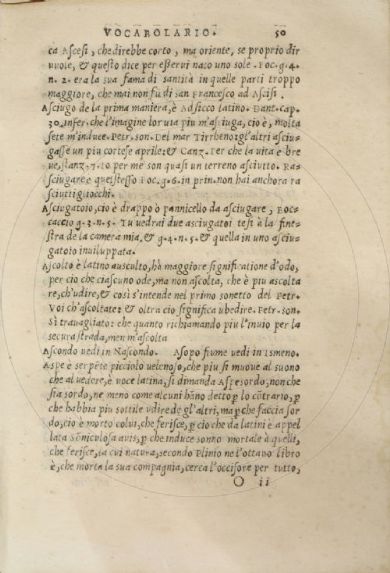 VOCABOLARIO. 50
ca Ascesi, che direbbe corto, ma oriente, se proprio dir
vuole, & questo dice per esservi nato uno sole. Boc.g.4.
n. 2. era la sua fama di santità in quelle parti troppo
maggiore, che mai non fu di san Francesco ad Ascisi.
Asciugo de la prima maniera, è Adsicco latino. Dant. cap.
30. infer. che l'imagine lor via piu m'asciuga, cio è, molta
sete m'induce. Petr. son. Del mar Tirrheno: gl'altri asciu-
gasse un piu cortese aprile: & Canz. Per che la vita è bre
ue, stanz. 7. Io per me son quasi un terreno asciutto. Ra-
sciugare è quest'esso Boc.g.6. in prin. non hai anchora ra
sciutti gliocchi.
Asciugatoio, cio è drappo o pannicello da asciugare, Boc-
caccio g.3.n.5. Tu uedrai due asciugatoi tesi à la fine-
stra de la camera mia, & g.4.n.5. & quella in uno asciu-
gatoio inuiluppata.
Ascolto è latino ausculto, hà maggiore significatione d'odo,
per cio che ciascuno ode, ma non ascolta, che è piu ascolta
re, ch'udire, & così s'intende nel primo sonetto del Petr.
Voi ch'ascoltate: & oltra cio significa ubedire. Petr. son.
Sì trauiato: che quanto richiamando piu l'inuio per la
secura strada, men m'ascolta
Ascondo uedi in Nascondo. Asopo fiume uedi in Ismeno.
Aspe è serpete picciolo uelenoso, che piu si muoue al suono
che al uedere, è voce latina, si dimanda Aspe sordo, non che
sia sordo, ne meno come alcuni hāno detto ꝑ lo cōtrario, ꝑ
che habbia piu sottile vdire de gl'altri, ma ꝑ che faccia sor
do, cio è morto colui, che ferisce, ꝑ cio che da latini è appel
lata Sōniculosa auis, ꝑ che induce sonno mortale à quelli,
che ferisce, la cui natura, secondo Plinio ne l'ottauo libro
è, che morta la sua compagnia, cerca l'occisore per tutto,
O ii